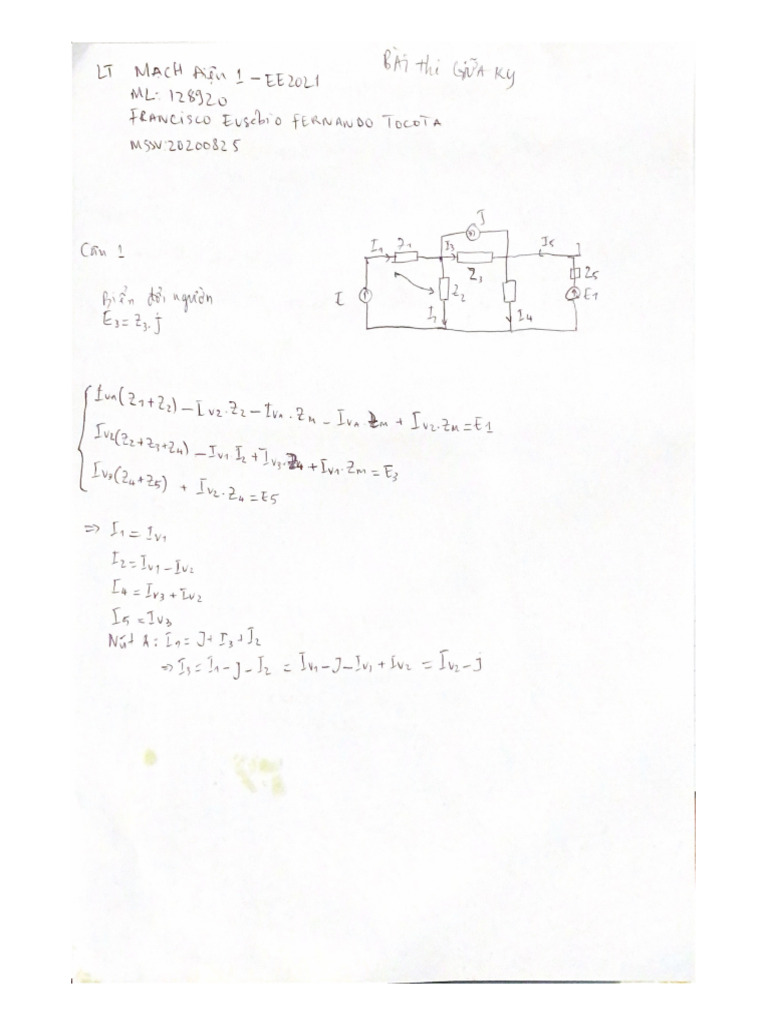 BÀI thi GIỮA Kỳ
LT MẠCH ĐIỆN 1 - EE2021
ML: 128920
FRANCISCO EUSÉBIO FERNANDO TOCOTA
MSSV: 20200825
Câu 1
Biến đổi nguồn
E3 = Z3. j
J
I1 Z1 I3 I5
Z3 Z5
E Z2 E1
I2 I4
Iv1(Z1+Z2) - Iv2.Z2 - Iv1.Zm - Iv1 Zm + Iv2.Zm = E1
Iv2(Z2+Z3+Z4) - Iv1.I2 + Iv3.Z4 + Iv1.Zm = E3
Iv3(Z4+Z5) + Iv2.Z4 = E5
=> I1 = Iv1
I2 = Iv1 - Iv2
I4 = Iv3 + Iv2
I5 = Iv3
Nút A: I1 = J + I3 + I2
=> I3 = I1 - J - I2 = Iv1 - J - Iv1 + Iv2 = Iv2 - j